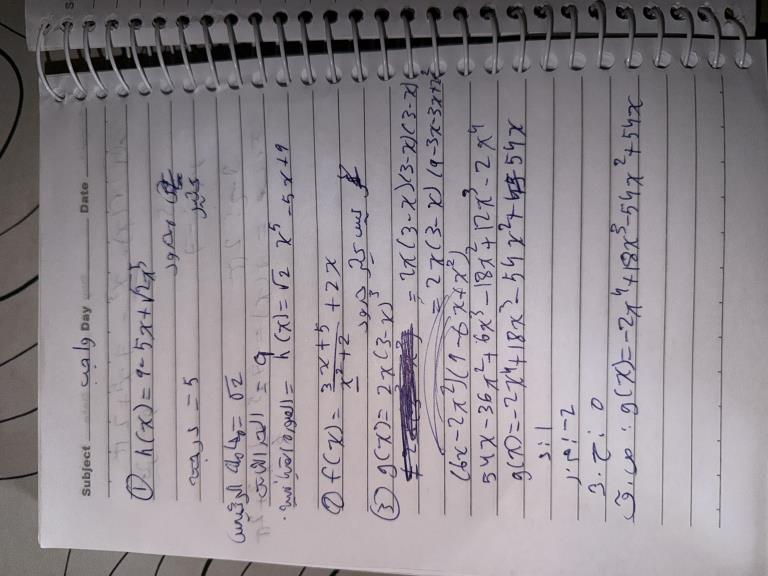 Subject واجب Day Date
① h(x) = 9 - 5x + √2x⁵
درجته = 5
المعامل الرئيسي = √2
الحد الثابت = 9
h(x) = √2 x⁵ - 5x + 9
② f(x) = 3x+5 / x²+2 + 2x
ليس كثير حدود
③ g(x) = 2x(3-x)³ = 2x(3-x)(3-x)(3-x)
= 2x(3-x)(9-3x-3x+x²
(6x-2x²)(9-6x+x²)
54x-36x²+6x³-18x²+12x³-2x⁴
g(x)=-2x⁴+18x³-54x²+54x
م.ر: -2
ح.ث: 0
g(x)=-2x⁴+18x³-54x²+54x